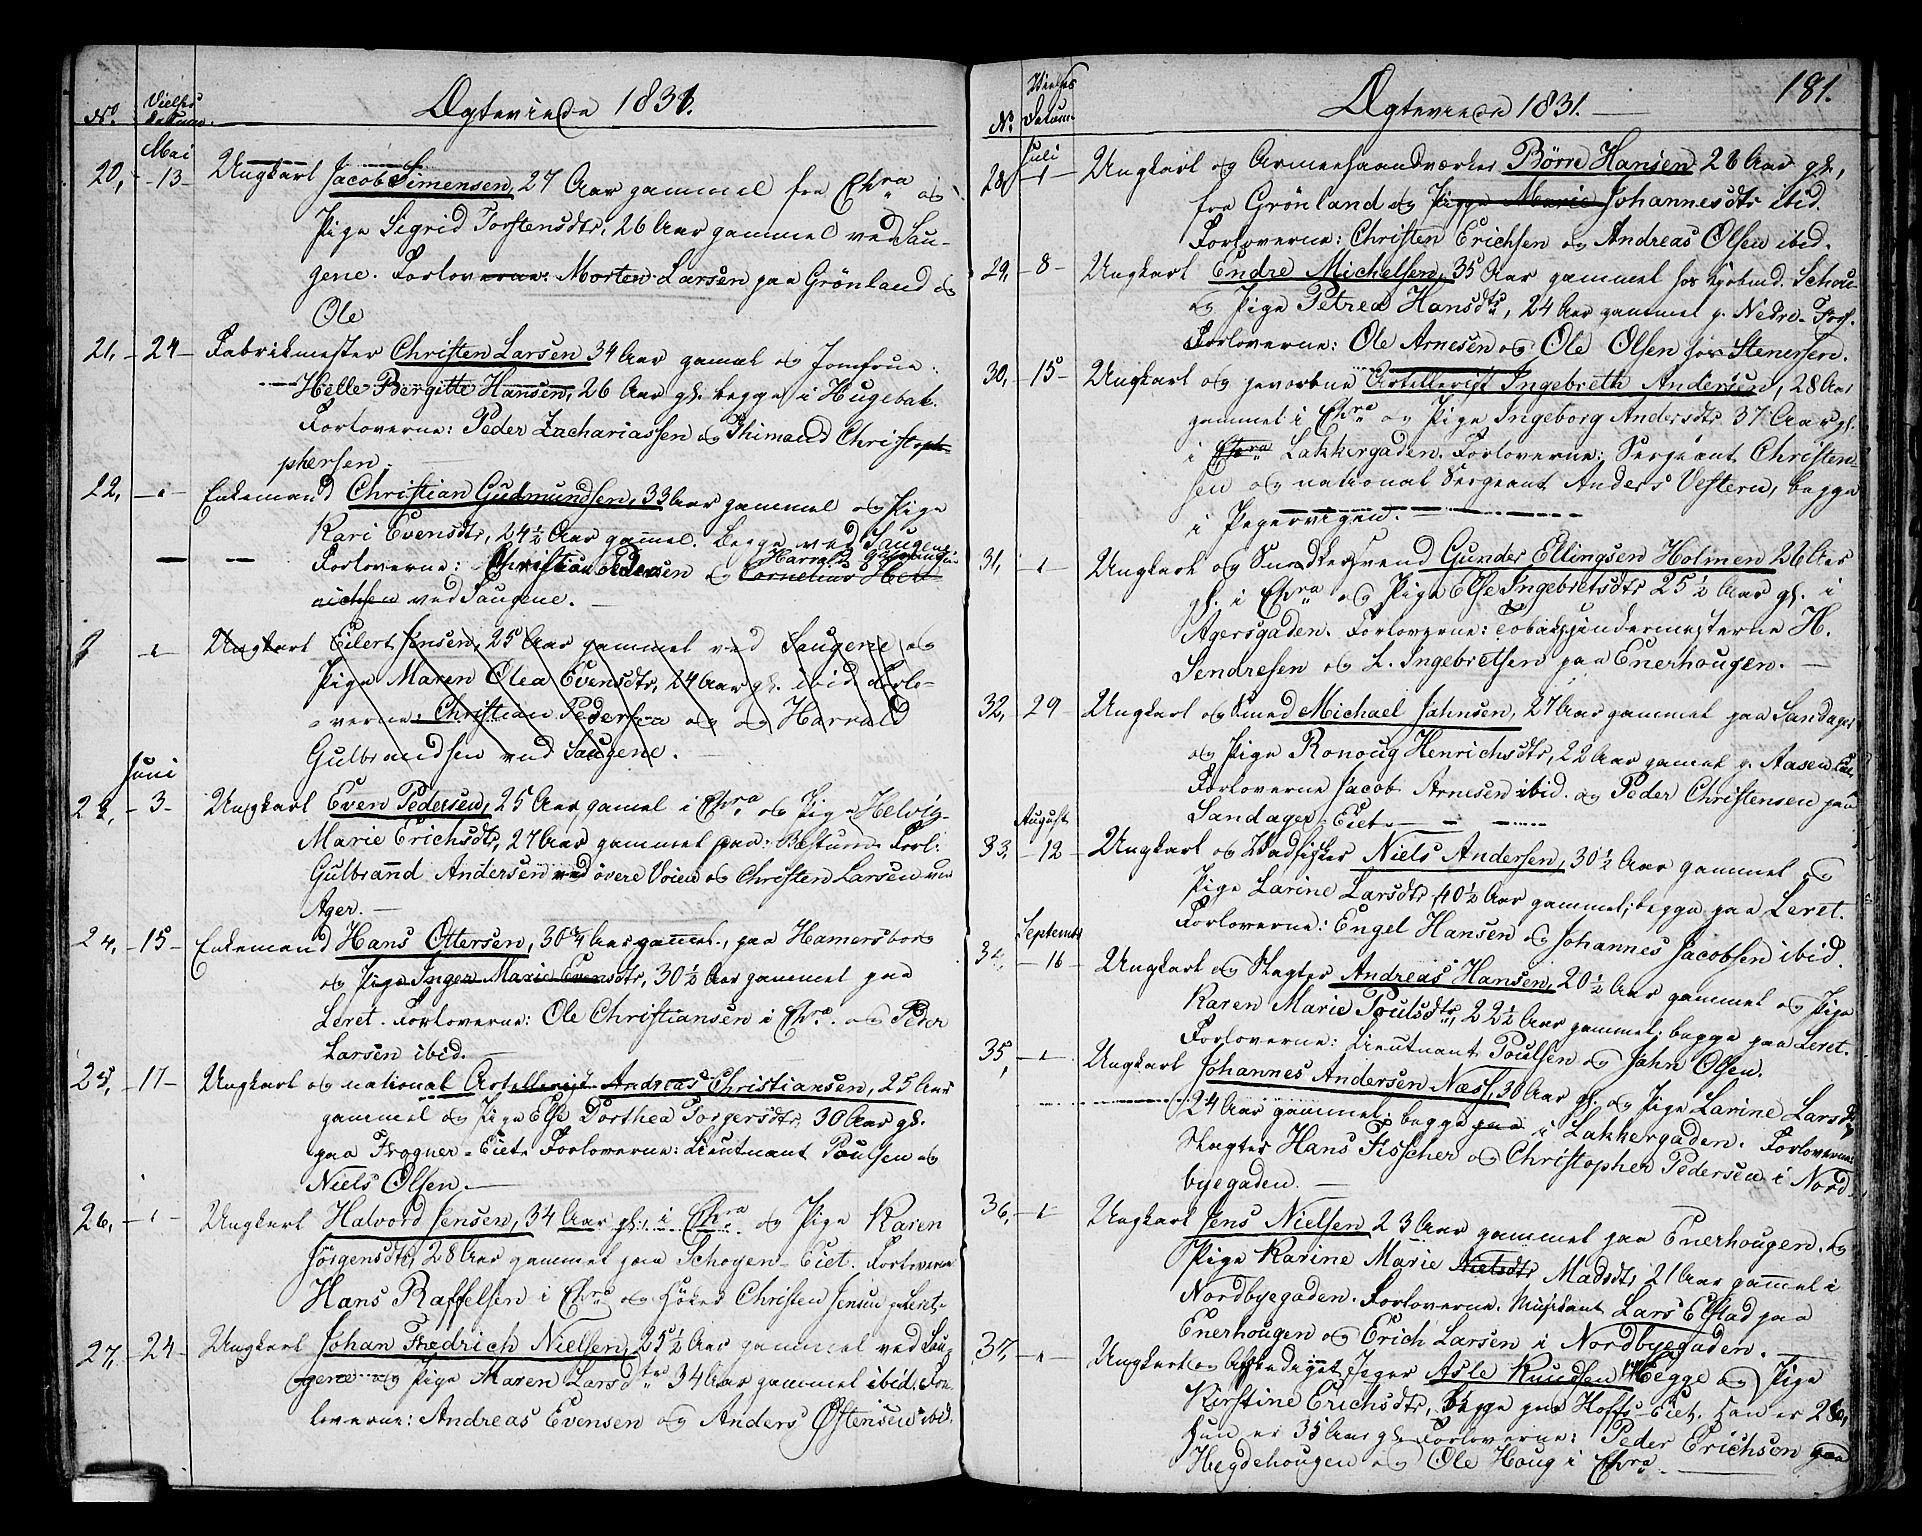 Ægteviede 1831.
No. Vielses Datum.
Mai
20, -13- Ungkarl Jacob Simensen, 27 Aar gammel fra Chra og
Pige Sigrid Torstensdtr, 26 Aar gammel ved Sau-
gene. Forloverne: Morten Larsen paa Grönland og
Ole
21, -24- Fabrikmester Christen Larsen 34 Aar gamel og Jomfrue
Helle Bergitte Hansen, 26 Aar gl. begge i Hugebak.
Forloverne: Peder Zachariassen og Thimand Christoph-
phersen.
22, Enkemand Christian Gudmundsen, 33 Aar gammel og Pige
Kari Evensdtr, 24½ Aar gammel. Begge ved Saugene
Forloverne: Christian Pedersen og Cornelius Hen-
Harrald Gulbrandsen
richsen ved Saugene.
Ungkarl Eilert Jensen, 25 Aar gammel ved Saugene og
Pige Maren Olea Evensdtr, 24 Aar gl. ibid Forlo-
verne: Christian Pedersen og og Harrald
Gulbrandsen ved Saugene.
Juni
23, -3- Ungkarl Even Pedersen, 25 Aar gamel i Chra og Pige Helvig
Marie Erichsdtr, 27 Aar gammel paa Bæstum Forl:
Gulbrand Andersen ved övere Voien og Christen Larsen ved
Ager.
24, -15- Enkemand Hans Ottersen, 30¾ Aar gammel, paa Hamersborg
og Pige Inger Marie Evensdtr, 30½ Aar gammel paa
Leret. Forloverne: Ole Christiansen i Chra. og Peder
Larsen ibid.
25, -17- Ungkarl og national Artillerist Andreas Christiansen, 25 Aar
gammel og Pige Else Dorthea Torgersdtr. 30 Aar gl.
paa Frogner-Eiet Forloverne: Lieutnant Poulsen og
Niels Olsen.
26, Ungkarl Halvord Jensen, 34 Aar gl. i Chra og Pige Karen
Jörgensdtr, 28 Aar gammel paa Schoyen-Eiet. Forloverne
Hans Raffelsen i Chra og Höker Christen Jensen p. Leret
27, -24- Ungkarl Johan Fredrich Nielsen, 25½ Aar gammel ved Sau-
gene og Pige Maren Larsdtr 34 Aar gammel ibid. For-
loverne: Andreas Evensen og Anders Ostensen ibid.
181.
Ægteviede 1831.
No. Vielses Datum
Juli
28, -1- Ungkarl og Armeehaandværker Börre Hansen 28 Aar gl.,
fra Grönland og Pigge Marie Johannesdtr ibid.
Forloverne: Christen Erichsen og Andreas Olsen ibid.
29, -8- Ungkarl Endre Michelsen, 35 Aar gammel hos Kjöbmd. Schou
og Pige Petrea Hansdtr, 24 Aar gammel p. Nedre-Fos.
Forloverne: Ole Arnesen og Ole Olsen hos Stenersen.
30, -15- Ungkarl og gevorbne Artillerist Ingebreth Andersen, 28 Aar
gammel i Chra og Pige Ingeborg Andersdtr 37 Aar gl.
i Chra Lakkergaden. Forloverne: Sergeant Christen-
sen og national Sergeant Anders Vestern, begge
i Pegervigen.
31, Ungkarl og Snedkersvend Gunder Ellingsen Holmen 26 Aar
gl. i Chra og Pige Else Ingebretsdtr 25½ Aar gl. i
Agersgaden. Forloverne: Tobakspindermesterne H.
Sendresen og L. Ingebretsen paa Enerhougen.
32, 29 Ungkarl og Smed Michael Jahnsen, 27 Aar gammel paa Sandager
og Pige Ronoug Henrichsdtr, 22 Aar gammel p. Aasen Eie,
Forloverne Jacob Arnesen ibid. og Peder Christensen paa
Sandager-Eiet
August
33, -12- Ungkarl og Vadfisker Niels Andersen, 30½ Aar gammel og
Pige Larine Larsdtr, 40½ Aar gammel; begge paa Leret.
Forloverne: Engel Hansen og Johannes Jacobsen ibid.
September
34, -16- Ungkarl og Slagter Andreas Hansen, 20½ Aar gammel og Pige
Karen Marie Poulsdtr, 22½ Aar gammel; begge paa Leret.
Forloverne: Lieutnant Poulsen og Jahn Olsen.
35, Ungkarl Johannes Andersen Næss, 30 Aar gl. og Pige Larine Larsdtr
24 Aar gammel; begge paa i Lakkergaden. Forloverne
Slagter Hans Fisscher og Christopher Pedersen i Nord-
byegaden.
36, Ungkarl Jens Nielsen 23 Aar gammel paa Enerhougen. og
Pige Karine Marie Nielsdtr Madsdtr 21 Aar gammel i
Nordbyegaden. Forloverne. Musikant Lars Elstad paa
Enerhougen og Erich Larsen i Nordbyegaden.
37, Ungkarl og Afskediget Jeger Asle Knudsen Hegge og Pige
Kirstine Erichsdtr, begge paa Hoffs-Eiet. Han er 28,
Hun er 35 Aar gl. Forloverne: Peder Erichsen paa
Hegdehougen og Ole Houg i Chra.